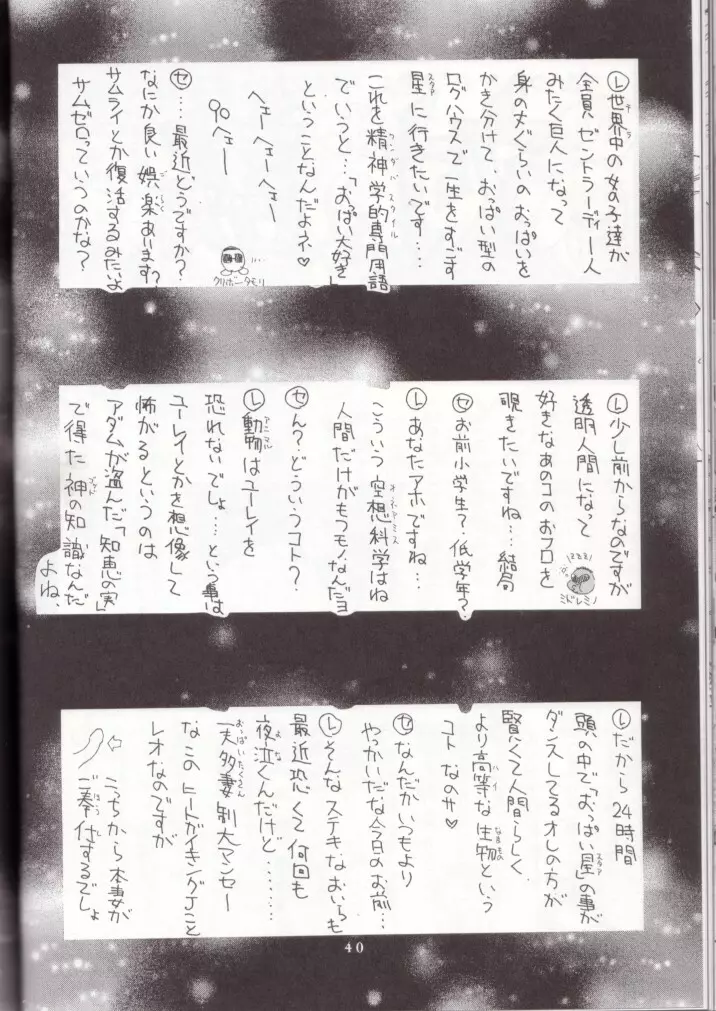 Ⓛ世界中の女の子達が
全員ゼントラーディー人
みたく巨人になって
身の丈ぐらいのおっぱいを
かき分けて、おっぱい型の
ログハウスで一生をすごす
星に行きたいです…
スタア
これを精神学的専門用語
でいうと…「おっぱい大好き」
ということなんだよネ♡
ヘェーヘェーヘェー
90ヘェー
クリボータモリ
㋝…最近どうですか?
なにか良い娯楽あります?
ごらく
サムライとか復活するみたいよ
サムゼロっていうのかな?
Ⓛ少し前からなのですが
透明人間になって
好きなあのコのおフロを
覗きたいですね…結局
ミドレミノ
㋝お前小学生?低学年?
Ⓛあなたアホですね…
こういう空想科学はね
人間だけがもつモノなんだヨ
㋝ん?どういうコト?
Ⓛ動物はユーレイを
アニマル
恐れないでしょ…という事は
ユーレイとかを想像して
怖がるというのは
アダムが盗んだ「知恵の実」
で得た神の知識なんだ
ゴッド
よね、
Ⓛだから24時間
頭の中で「おっぱい星」の事が
スタア
ダンスしてるオレの方が
賢くて人間らしく
より高等な生物という
ハイ
なまもの
コトなのサ♡
㋝なんだかいつもより
やっかいだな今日のお前…
Ⓛそんなステキなおいらも
最近恐くて何回も
夜泣くんだけど………
よな
一夫多妻制大マンセー
おっぱいたくさん
なこのヒートガイキングJこと
レオなのですが
こっちから本妻が
ご奉仕するでしょ
ほうし
40